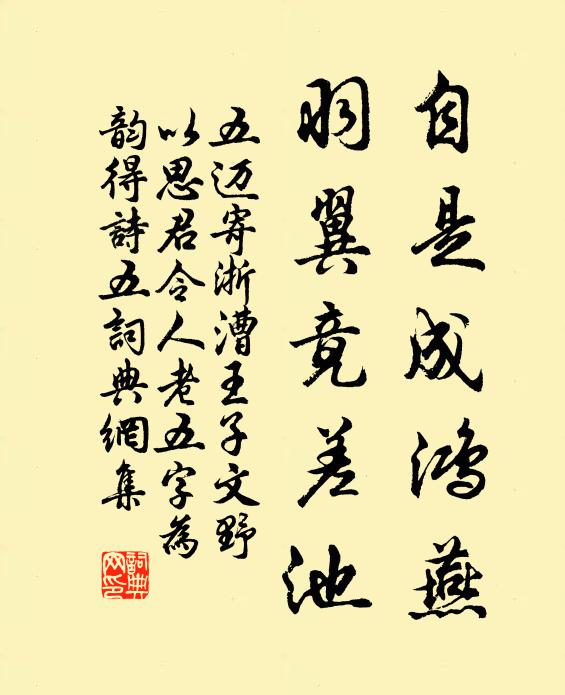 自是成鴻燕
羽翼竞差池
五迈寄浙漕王子文野
以思君令人老五字為
韵得詩五詞典網集
詞典
网印